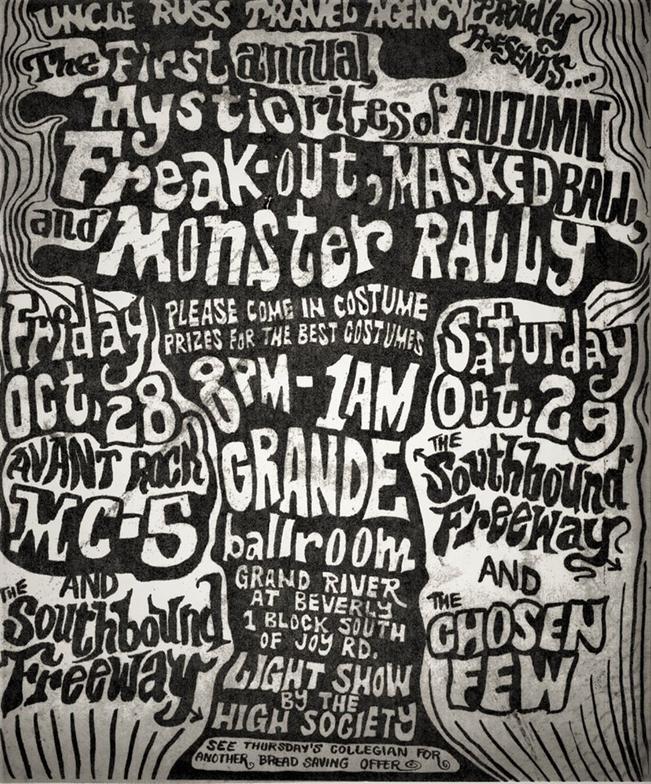 UNCLE RUSS TRAVEL AGENCY PROUDLY PRESENTS....
The First annual
Mystic rites of AUTUMN
Freak-out, MASKED BALL,
and Monster RALLY
PLEASE COME IN COSTUME
PRIZES FOR THE BEST COSTUMES
Friday
Oct. 28
AVANT ROCK
MC-5
AND
THE
Southbound
Freeway
8PM - 1AM
GRANDE
ballroom
GRAND RIVER
AT BEVERLY
1 BLOCK SOUTH
OF JOY RD.
LIGHT SHOW
BY THE
HIGH SOCIETY
Saturday
Oct. 29
THE
Southbound
Freeway
AND
THE
CHOSEN
FEW
SEE THURSDAY'S COLLEGIAN FOR
ANOTHER BREAD SAVING OFFER